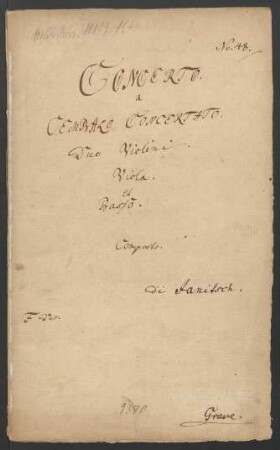 No. 48.
CONCERTO.
a
CEMBALO CONCERTATO.
Due Violini
Viola.
et
Basso.
Composto.
di Janitsch.
Grave.